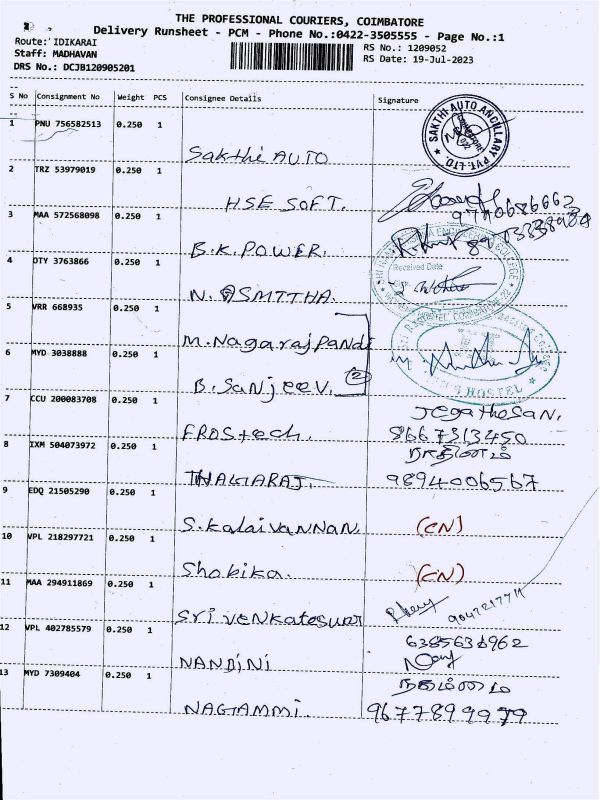 THE PROFESSIONAL COURIERS, COIMBATORE
Delivery Runsheet - PCM - Phone No.:0422-3505555 - Page No.:1
Route: IDIKARAI
RS No.: 1209052
Staff: MADHAVAN
RS Date: 19-Jul-2023
DRS No.: DCJB120905201
S No Consignment No Weight PCS Consignee Details Signature
1 PNU 756582513 0.250 1
SAKTHI AUTO ANCILLARY PVT. LTD.
Sakthi AUTO
2 TRZ 53979019 0.250 1
HSE SOFT.
3 MAA 572568098 0.250 1
B.K.POWER.
4 DTY 3763866 0.250 1
Received Date
N. SMITHA.
5 VRR 668935 0.250 1
M.NagarajPandi
6 MYD 3038888 0.250 1
B. Sanjeev. (2)
HOSTEL
7 CCU 200083708 0.250 1
Jegathesan.
FROStech. 8667313450
8 IXM 504073972 0.250 1
THAGARAJ. 9894006567
9 EDQ 21505290 0.250 1
S.Kalaivannan. (CN)
10 VPL 218297721 0.250 1
Shobika. (CN)
11 MAA 294911869 0.250 1
Sri Venkateswar
12 VPL 402785579 0.250 1
NANDINI
13 MYD 7309404 0.250 1
NAGAMMI. 9677899979